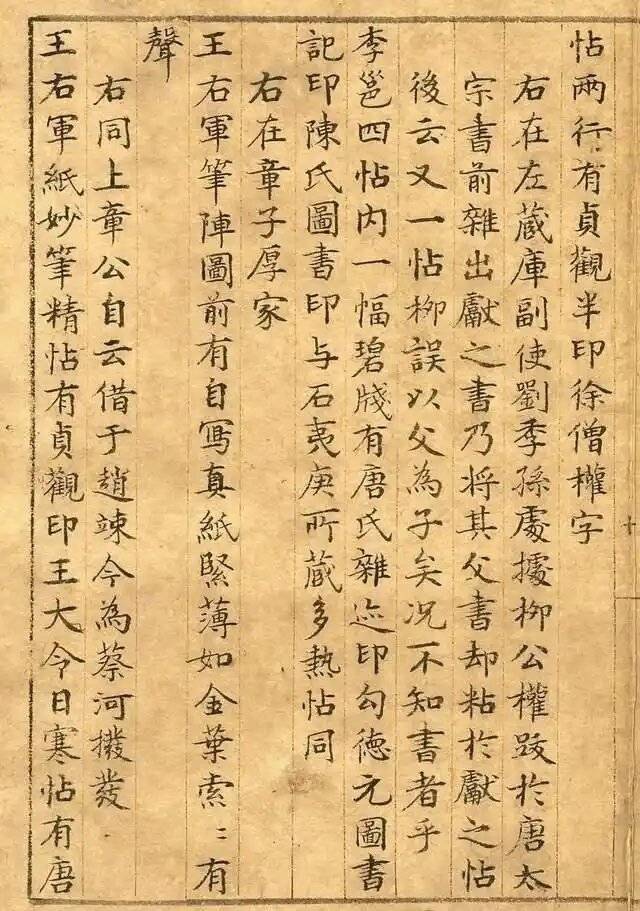 帖兩行有貞觀半印徐僧權字
右在左蔵庫副使劉季孫處據栁公權跋於唐太
宗書前雜出獻之書乃將其父書却粘於獻之帖
後云又一帖栁誤以父為子矣况不知書者乎
李邕四帖内一幅碧牋有唐氏雜迹印勾德元圖書
記印陳氏圖書印与石夷庚所蔵多熱帖同
右在章子厚家
王右軍筆陣圖前有自寫真紙緊薄如金葉索〻有
聲
右同上章公自云借于趙竦今為蔡河撥發
王右軍紙妙筆精帖有貞觀印王大令日寒帖有唐
十